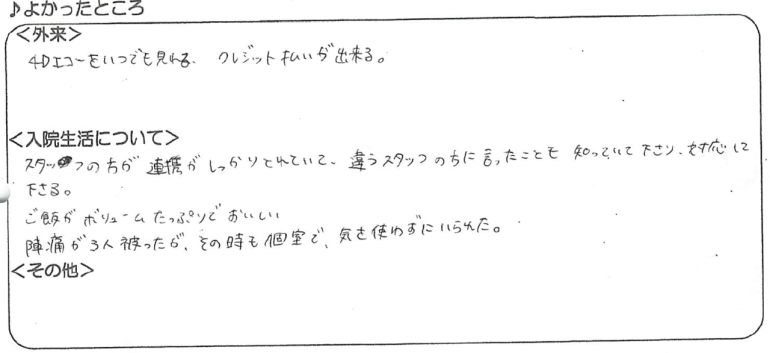 ♪よかったところ
<外来>
4Dエコーをいつでも見れる、クレジット払いが出来る。
<入院生活について>
スタッフの方が連携がしっかりとれていて、違うスタッフの方に言ったことも知っていて下さり、対応して
下さる。
ご飯がボリュームたっぷりでおいしい
陣痛が3人被ったが、その時も個室で、気を使わずにいられた。
<その他>